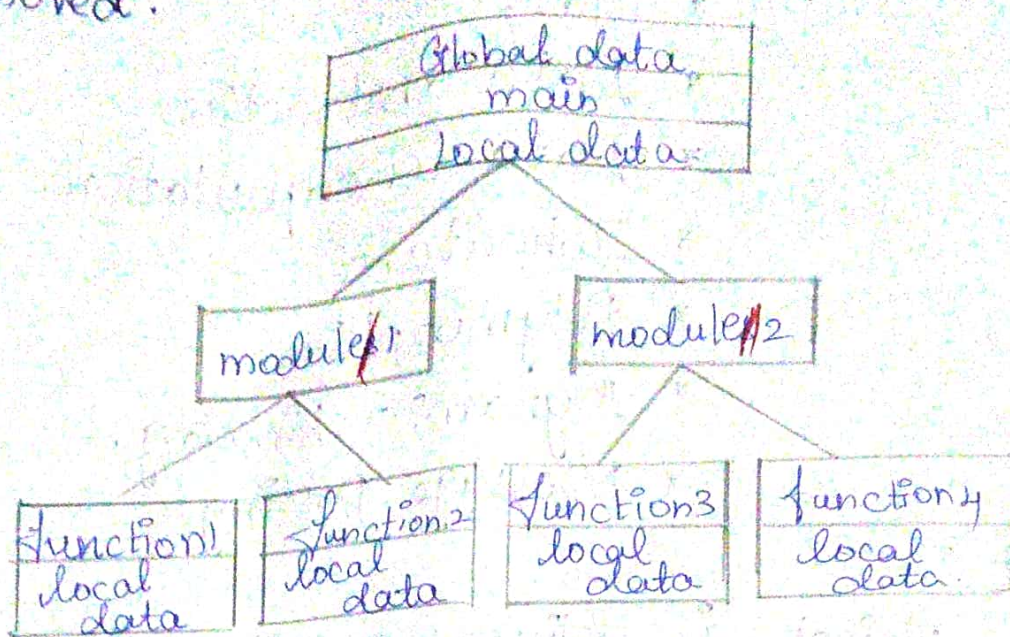 Global data
main
Local data
module 1
module 2
function1
local
data
function2
local
data
function3
local
data
function4
local
data